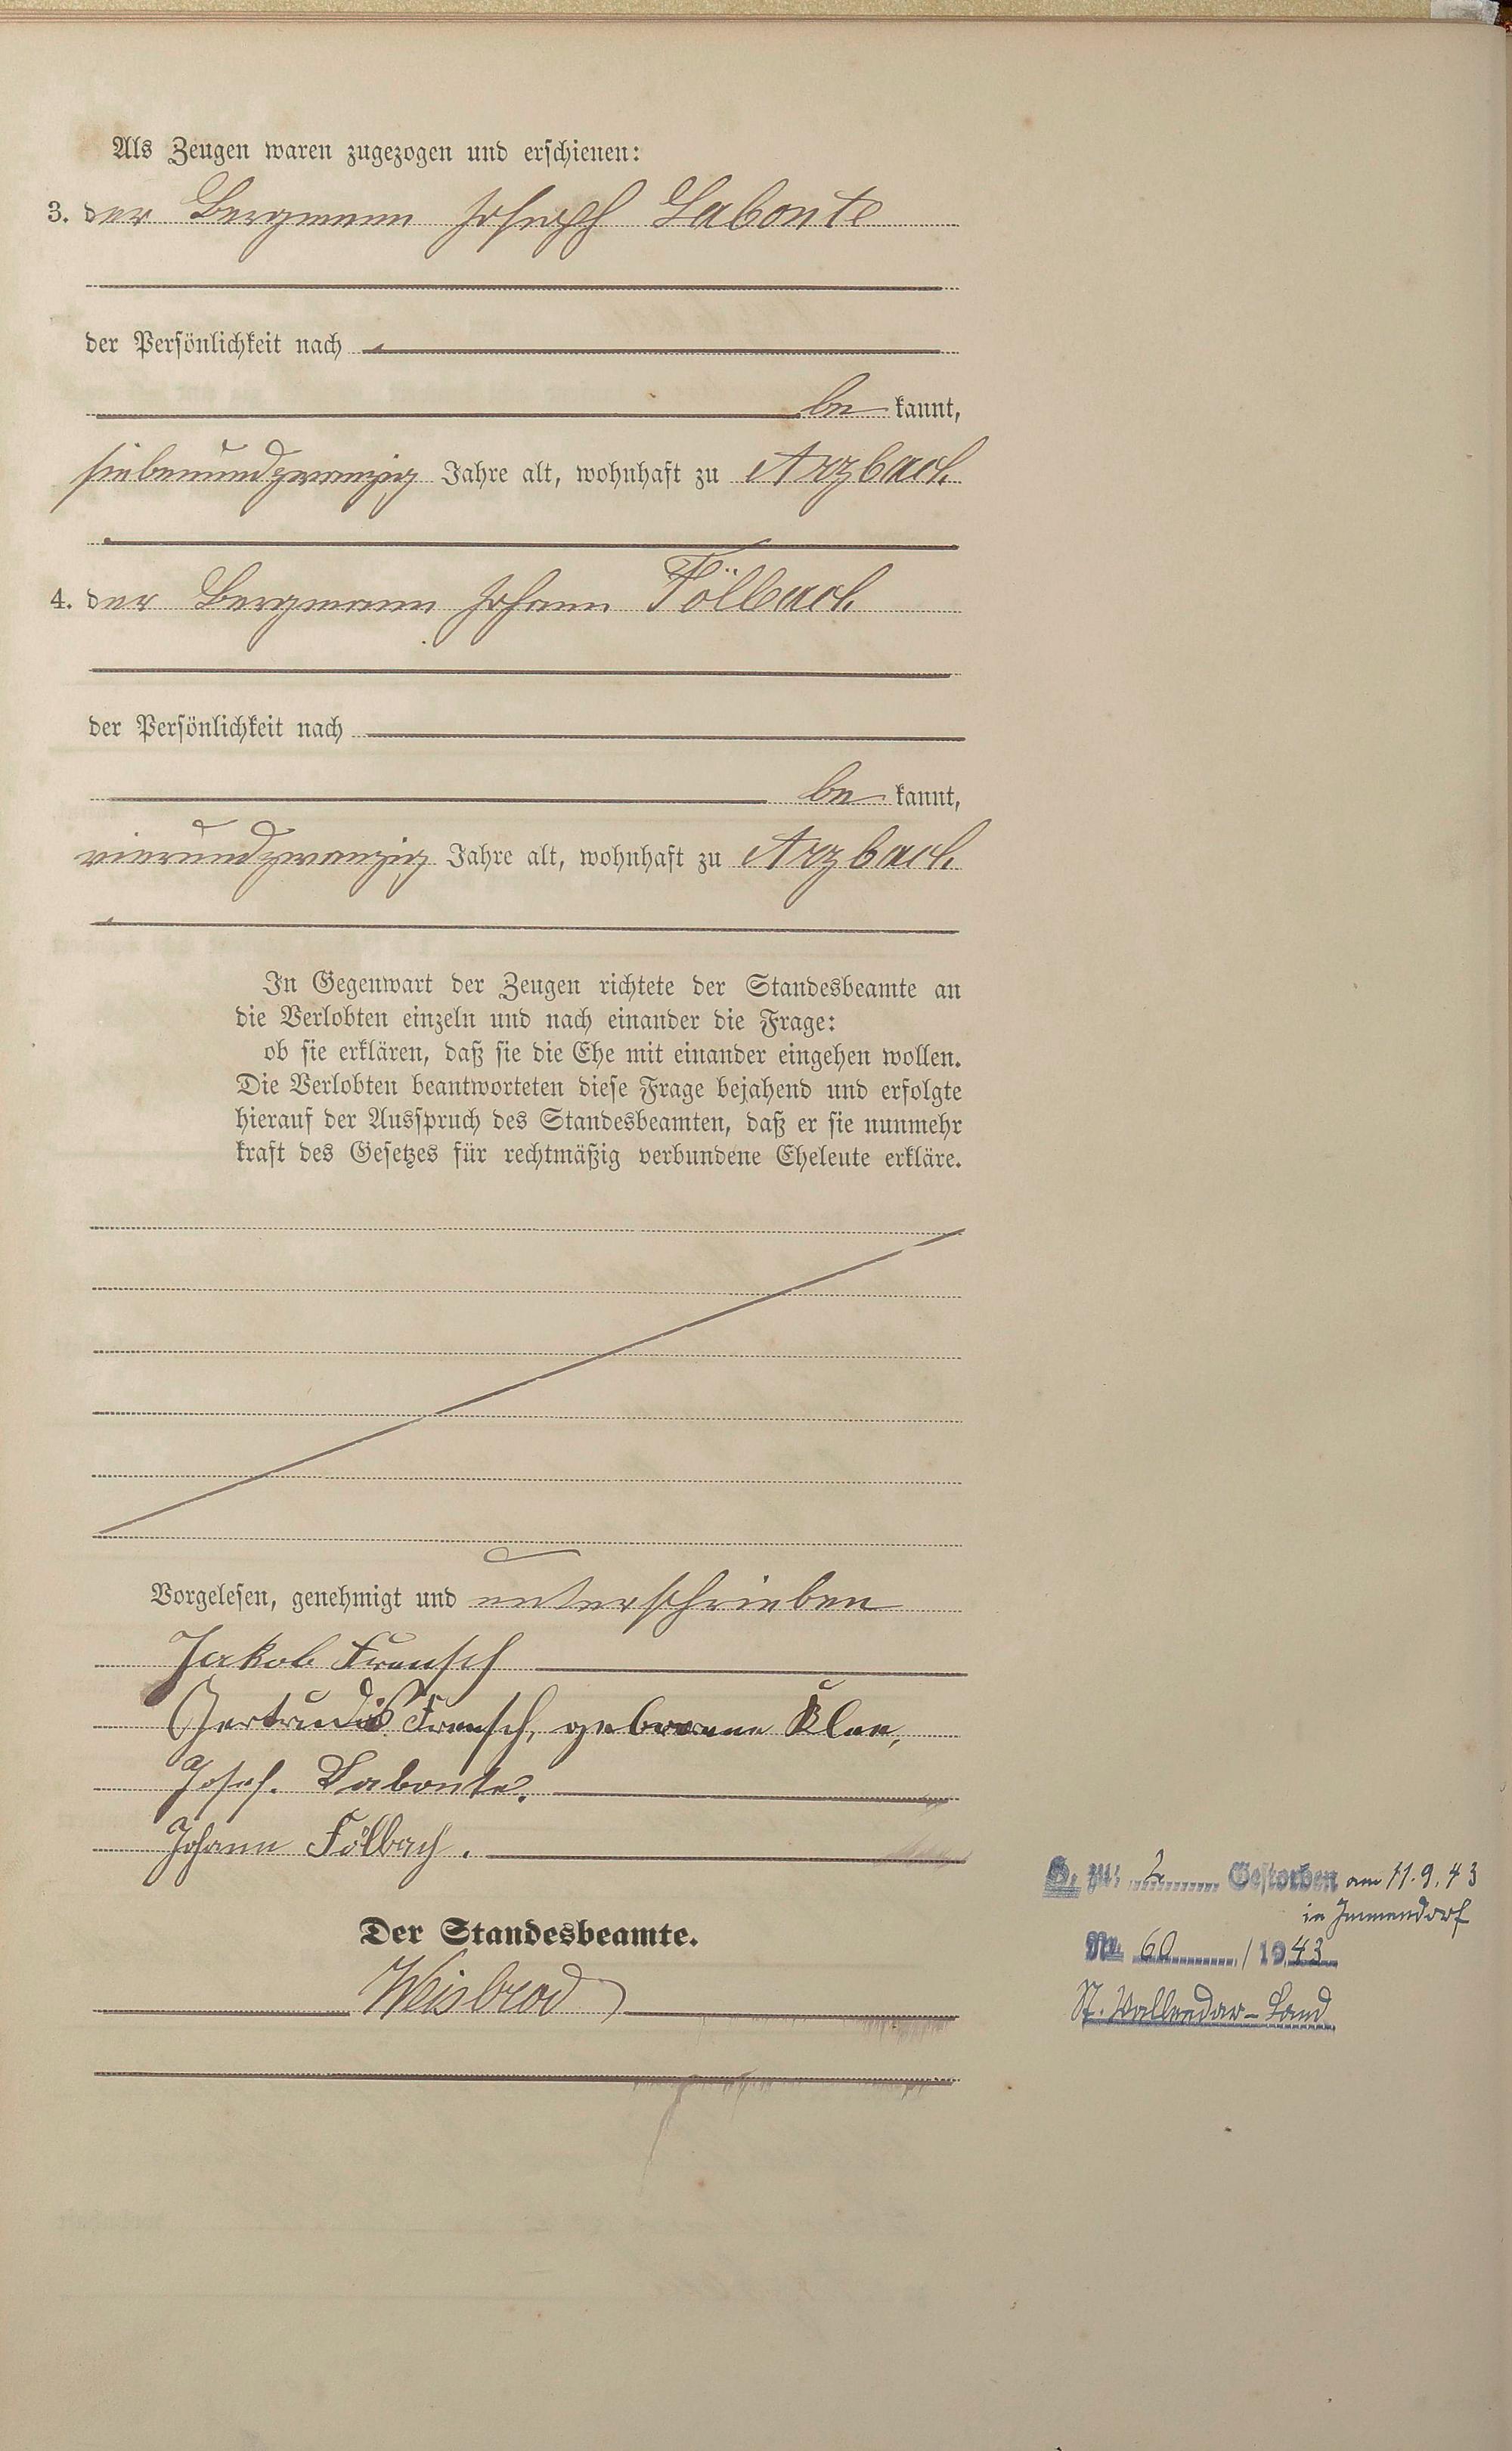 Als Zeugen waren zugezogen und erschienen:
3. der Bergmann Joseph Labonte
der Persönlichkeit nach
be kannt,
siebenundzwanzig Jahre alt, wohnhaft zu Arzbach
4. der Bergmann Johann Fölbach
der Persönlichkeit nach
be kannt,
vierundzwanzig Jahre alt, wohnhaft zu Arzbach
In Gegenwart der Zeugen richtete der Standesbeamte an
die Verlobten einzeln und nach einander die Frage:
ob sie erklären, daß sie die Ehe mit einander eingehen wollen.
Die Verlobten beantworteten diese Frage bejahend und erfolgte
hierauf der Ausspruch des Standesbeamten, daß er sie nunmehr
kraft des Gesetzes für rechtmäßig verbundene Eheleute erkläre.
Vorgelesen, genehmigt und unterschrieben
Jakob Frensch
Gertrudis Frensch, geborene Klee,
Josef. Labonte.
Johann Fölbach.
Der Standesbeamte.
Weisbrod
zu: 2 Gestorben am 11.9.43
in Immendorf
Nr. 60 /1943
St. Vallendar-Land